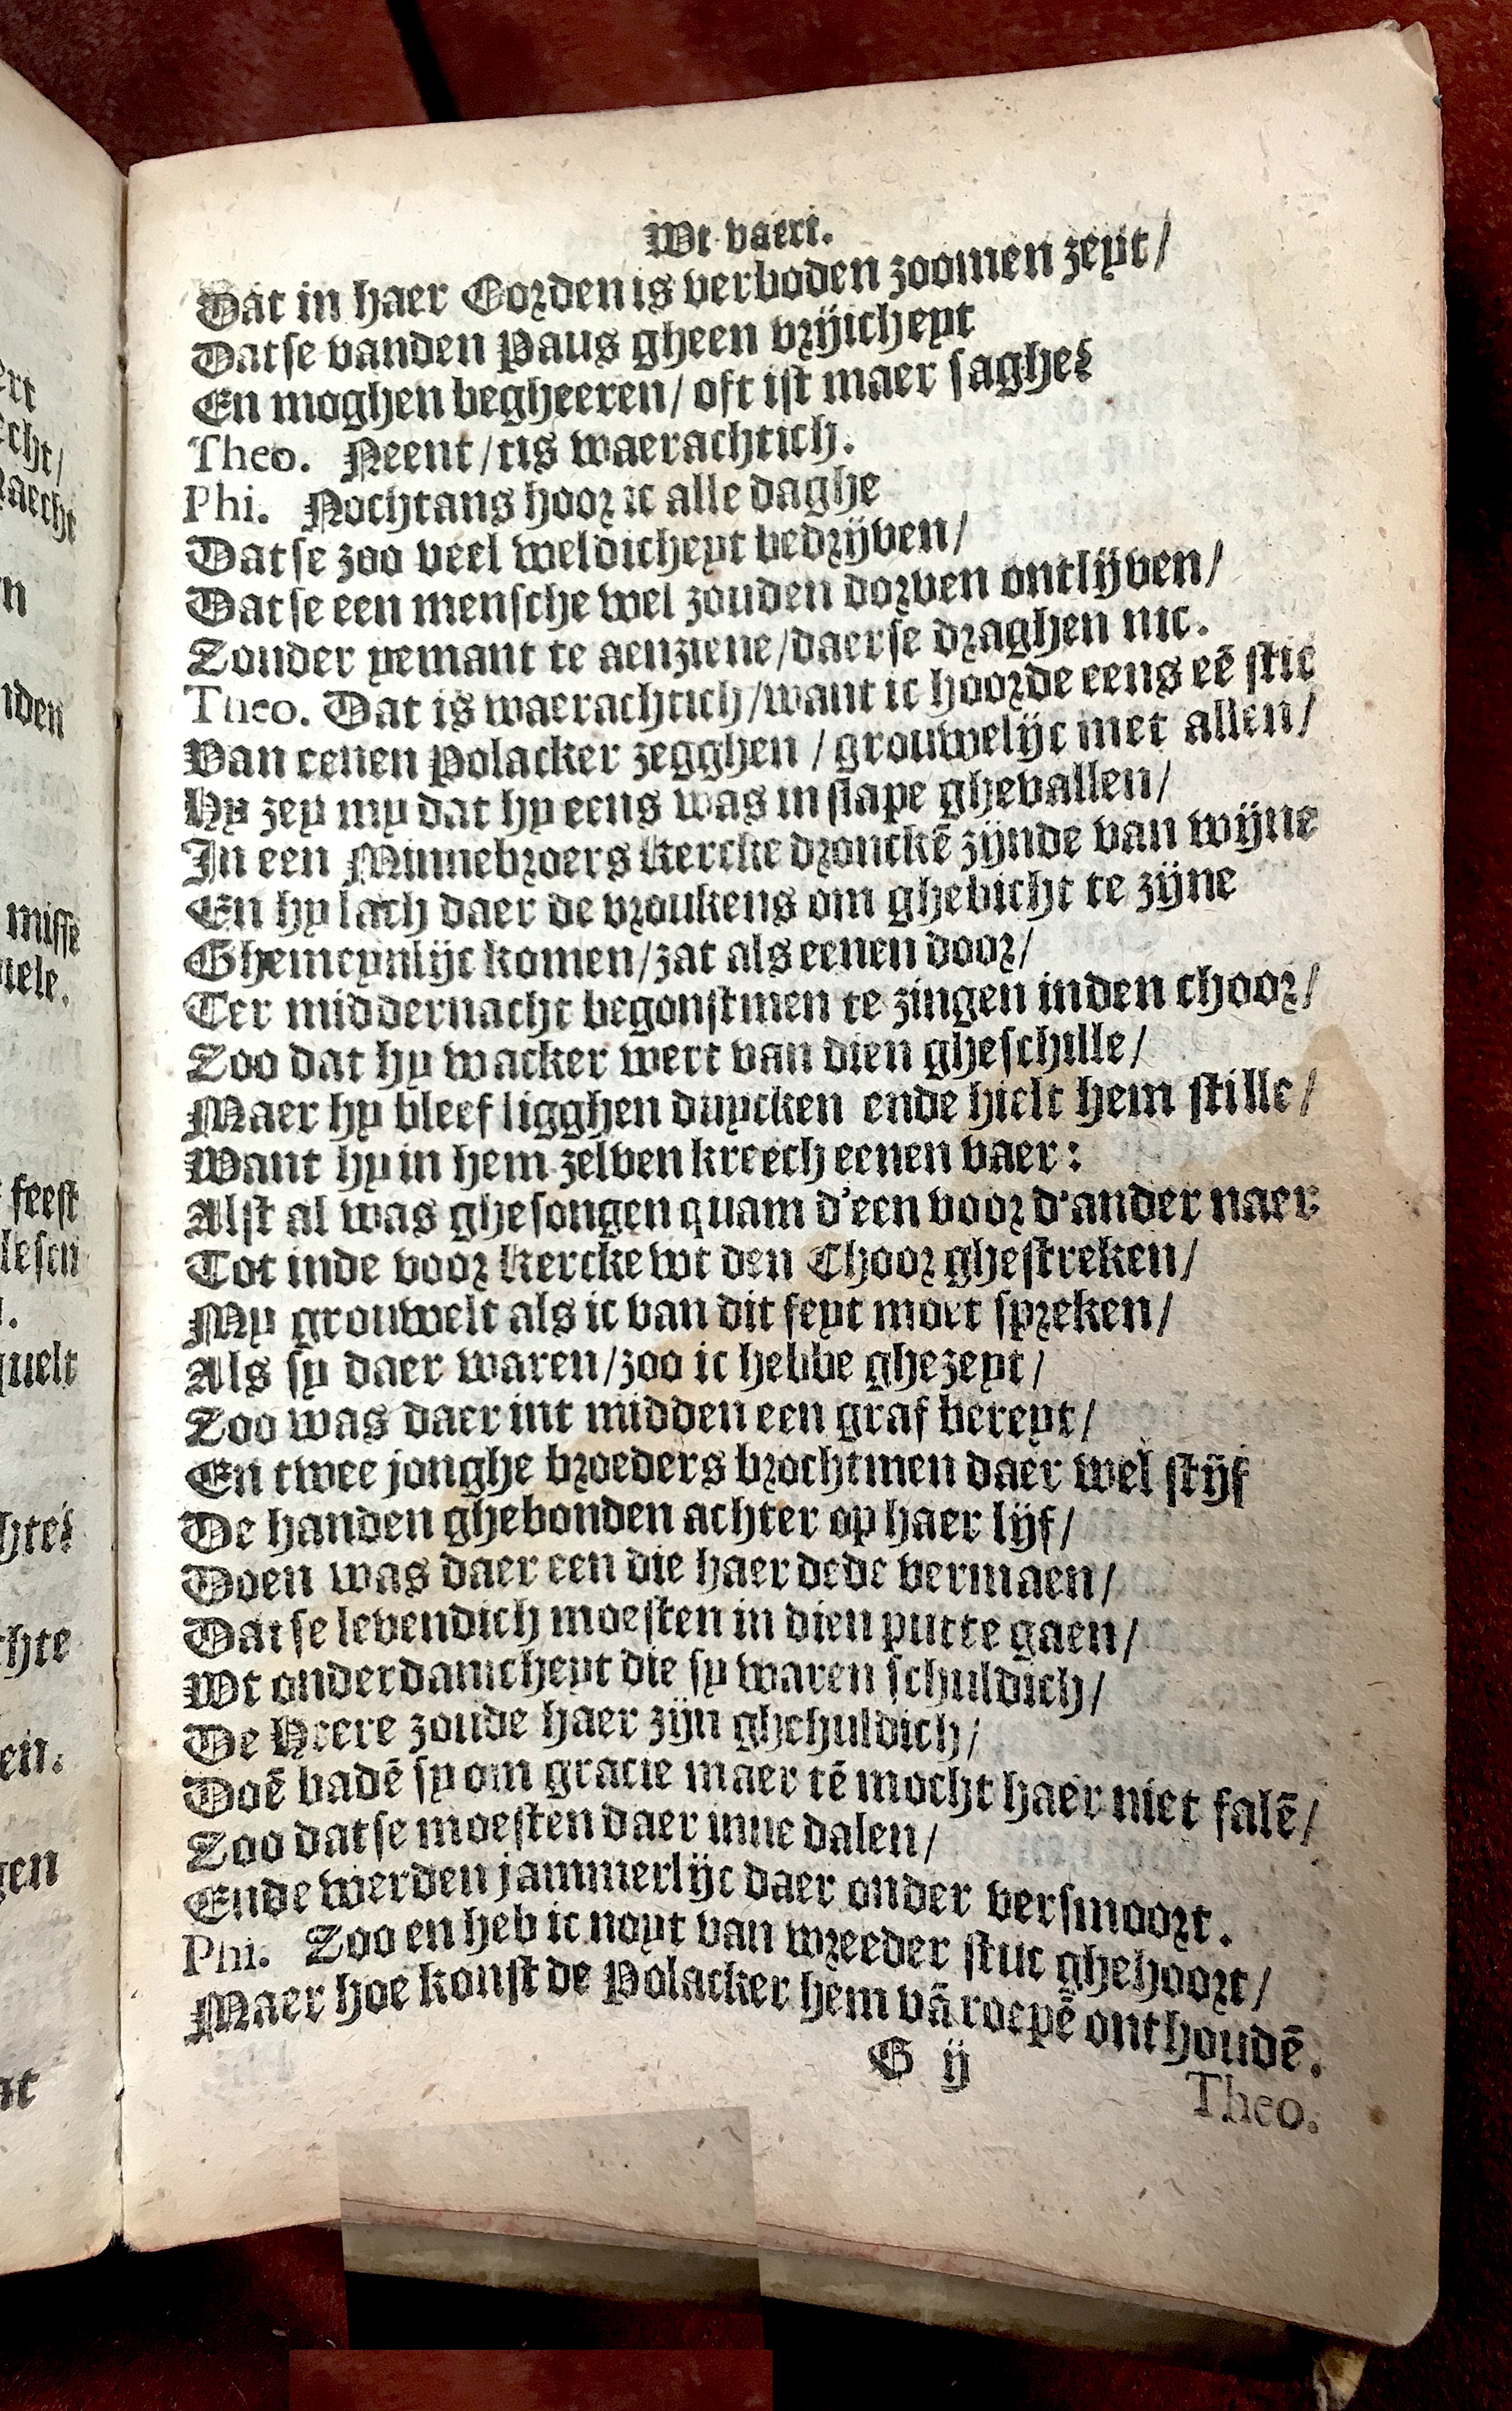 Wt vaert.
Dat in haer Oorden is verboden zoomen zeyt/
Datse vanden Paus gheen vrijicheyt
En moghen begheeren/ oft ist maer saghe?
Theo. Neent/tis waerachtich.
Phi. Nochtans hoor ic alle daghe
Datse zoo veel weldicheyt bedrijven/
Datse een mensche wel zouden dorven ontlijven/
Zonder yemant te aenziene/daerse draghen nic.
Theo. Dat is waerachtich/want ic hoorde eens eē stic
Van eenen Polacker zegghen / grouwelijc met allen/
Hy zey my dat hy eens was in slape ghevallen/
In een Minnebroers kercke dronckē zijnde van wijne
En hy lach daer de vroukens om ghebicht te zijne
Ghemeynlijc komen/zat als eenen door/
Ter middernacht begonstmen te zingen inden choor/
Zoo dat hy wacker wert van dien gheschille/
Maer hy bleef ligghen duycken ende hielt hem stille/
Want hy in hem zelven kreech eenen vaer:
Alst al was ghesongen quam d'een voor d'ander naer
Tot inde voor kercke wt den Choor ghestreken/
My grouwelt als ic van dit feyt moet spreken/
Als sy daer waren/zoo ic hebbe ghezeyt/
Zoo was daer int midden een graf bereyt/
En twee jonghe broeders brochtmen daer wel stijf
De handen ghebonden achter op haer lijf/
Doen was daer een die haer dede vermaen/
Datse levendich moesten in dien putte gaen/
Wt onderdanicheyt die sy waren schuldich/
De Heere zoude haer zijn ghehuldich/
Doē badē sy om gracie maer tē mocht haer niet falē/
Zoo datse moesten daer inne dalen/
Ende werden jammerlijc daer onder versmoort.
Phi. Zoo en heb ic noyt van wreeder stuc ghehoort/
Maer hoe konst de Polacker hem vā roepē onthoudē.
G ij
Theo.
rt
cht/
aecht
n
den
misse
uele.
feest
lesen
quelt
hte?
hte
en.
gen